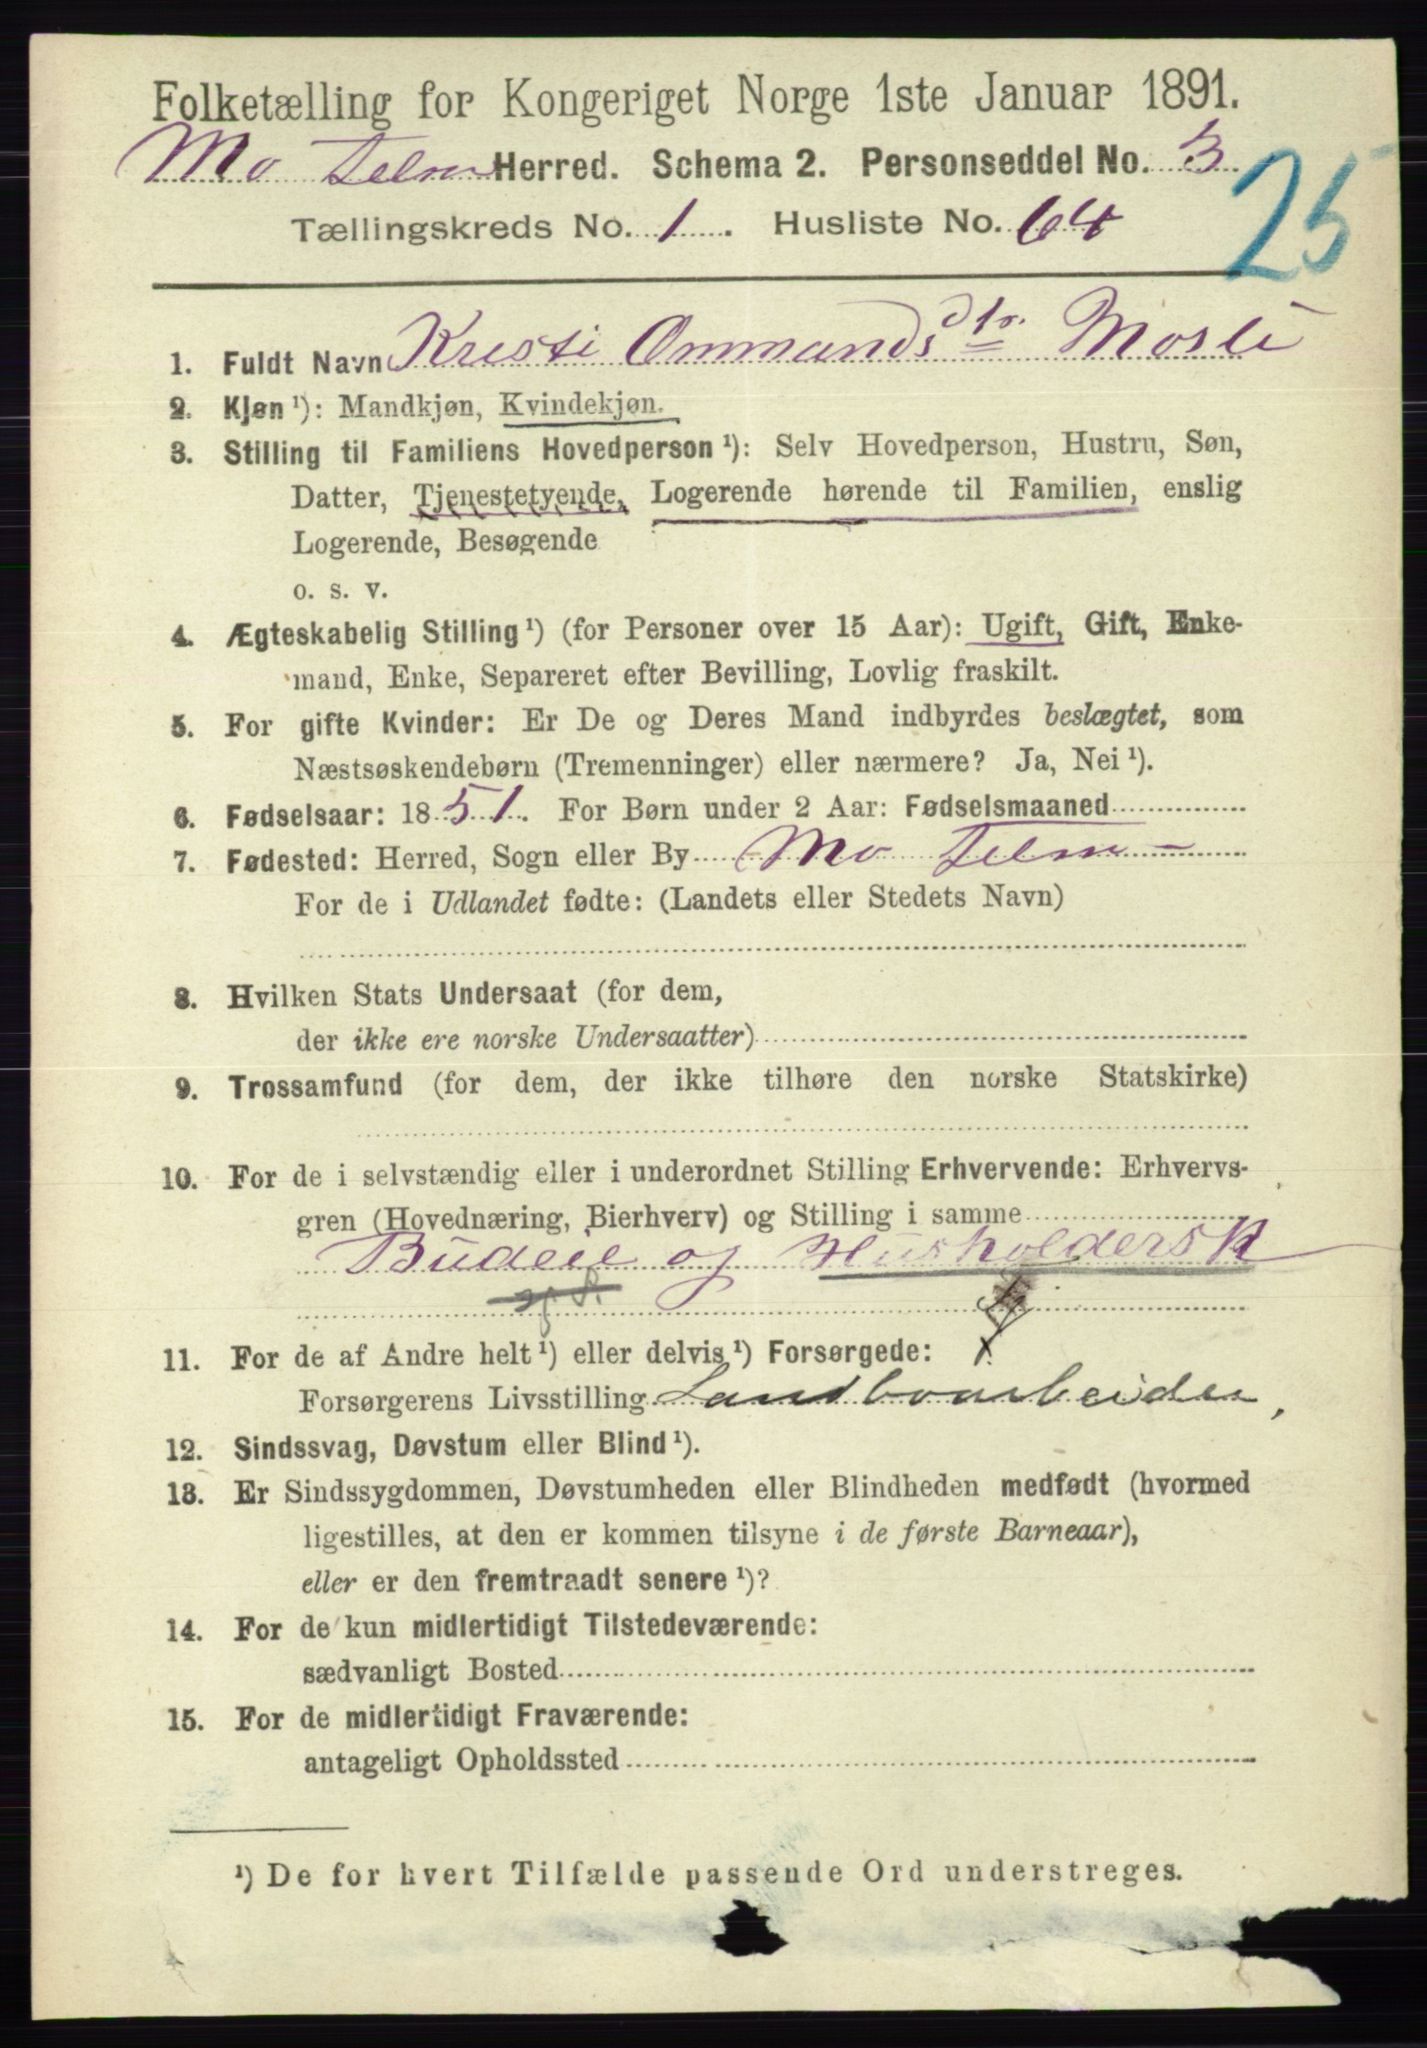 Folketælling for Kongeriget Norge 1ste Januar 1891.
Mo Telm Herred. Schema 2. Personseddel No. 3
25
Tællingskreds No. 1. Husliste No. 64
1. Fuldt Navn Kristi Ommundsdtr. Mosli
2. Kjøn ¹): Mandkjøn, Kvindekjøn.
3. Stilling til Familiens Hovedperson ¹): Selv Hovedperson, Hustru, Søn,
Datter, Tjenestetyende, Logerende hørende til Familien, enslig
Logerende, Besøgende
o. s. v.
4. Ægteskabelig Stilling ¹) (for Personer over 15 Aar): Ugift, Gift, Enke-
mand, Enke, Separeret efter Bevilling, Lovlig fraskilt.
5. For gifte Kvinder: Er De og Deres Mand indbyrdes beslægtet, som
Næstsøskendebørn (Tremenninger) eller nærmere? Ja, Nei ¹).
6. Fødselsaar: 1851. For Børn under 2 Aar: Fødselsmaaned
7. Fødested: Herred, Sogn eller By Mo Telm
For de i Udlandet fødte: (Landets eller Stedets Navn)
8. Hvilken Stats Undersaat (for dem,
der ikke ere norske Undersaatter)
9. Trossamfund (for dem, der ikke tilhøre den norske Statskirke)
10. For de i selvstændig eller i underordnet Stilling Erhvervende: Erhvervs-
gren (Hovednæring, Bierhverv) og Stilling i samme
Budeie og Husholdersk
11. For de af Andre helt ¹) eller delvis ¹) Forsørgede:
Forsørgerens Livsstilling Landboarbeider,
12. Sindssvag, Døvstum eller Blind ¹).
13. Er Sindssygdommen, Døvstumheden eller Blindheden medfødt (hvormed
ligestilles, at den er kommen tilsyne i de første Barneaar),
eller er den fremtraadt senere ¹)?
14. For de kun midlertidigt Tilstedeværende:
sædvanligt Bosted
15. For de midlertidigt Fraværende:
antageligt Opholdssted
¹) De for hvert Tilfælde passende Ord understreges.